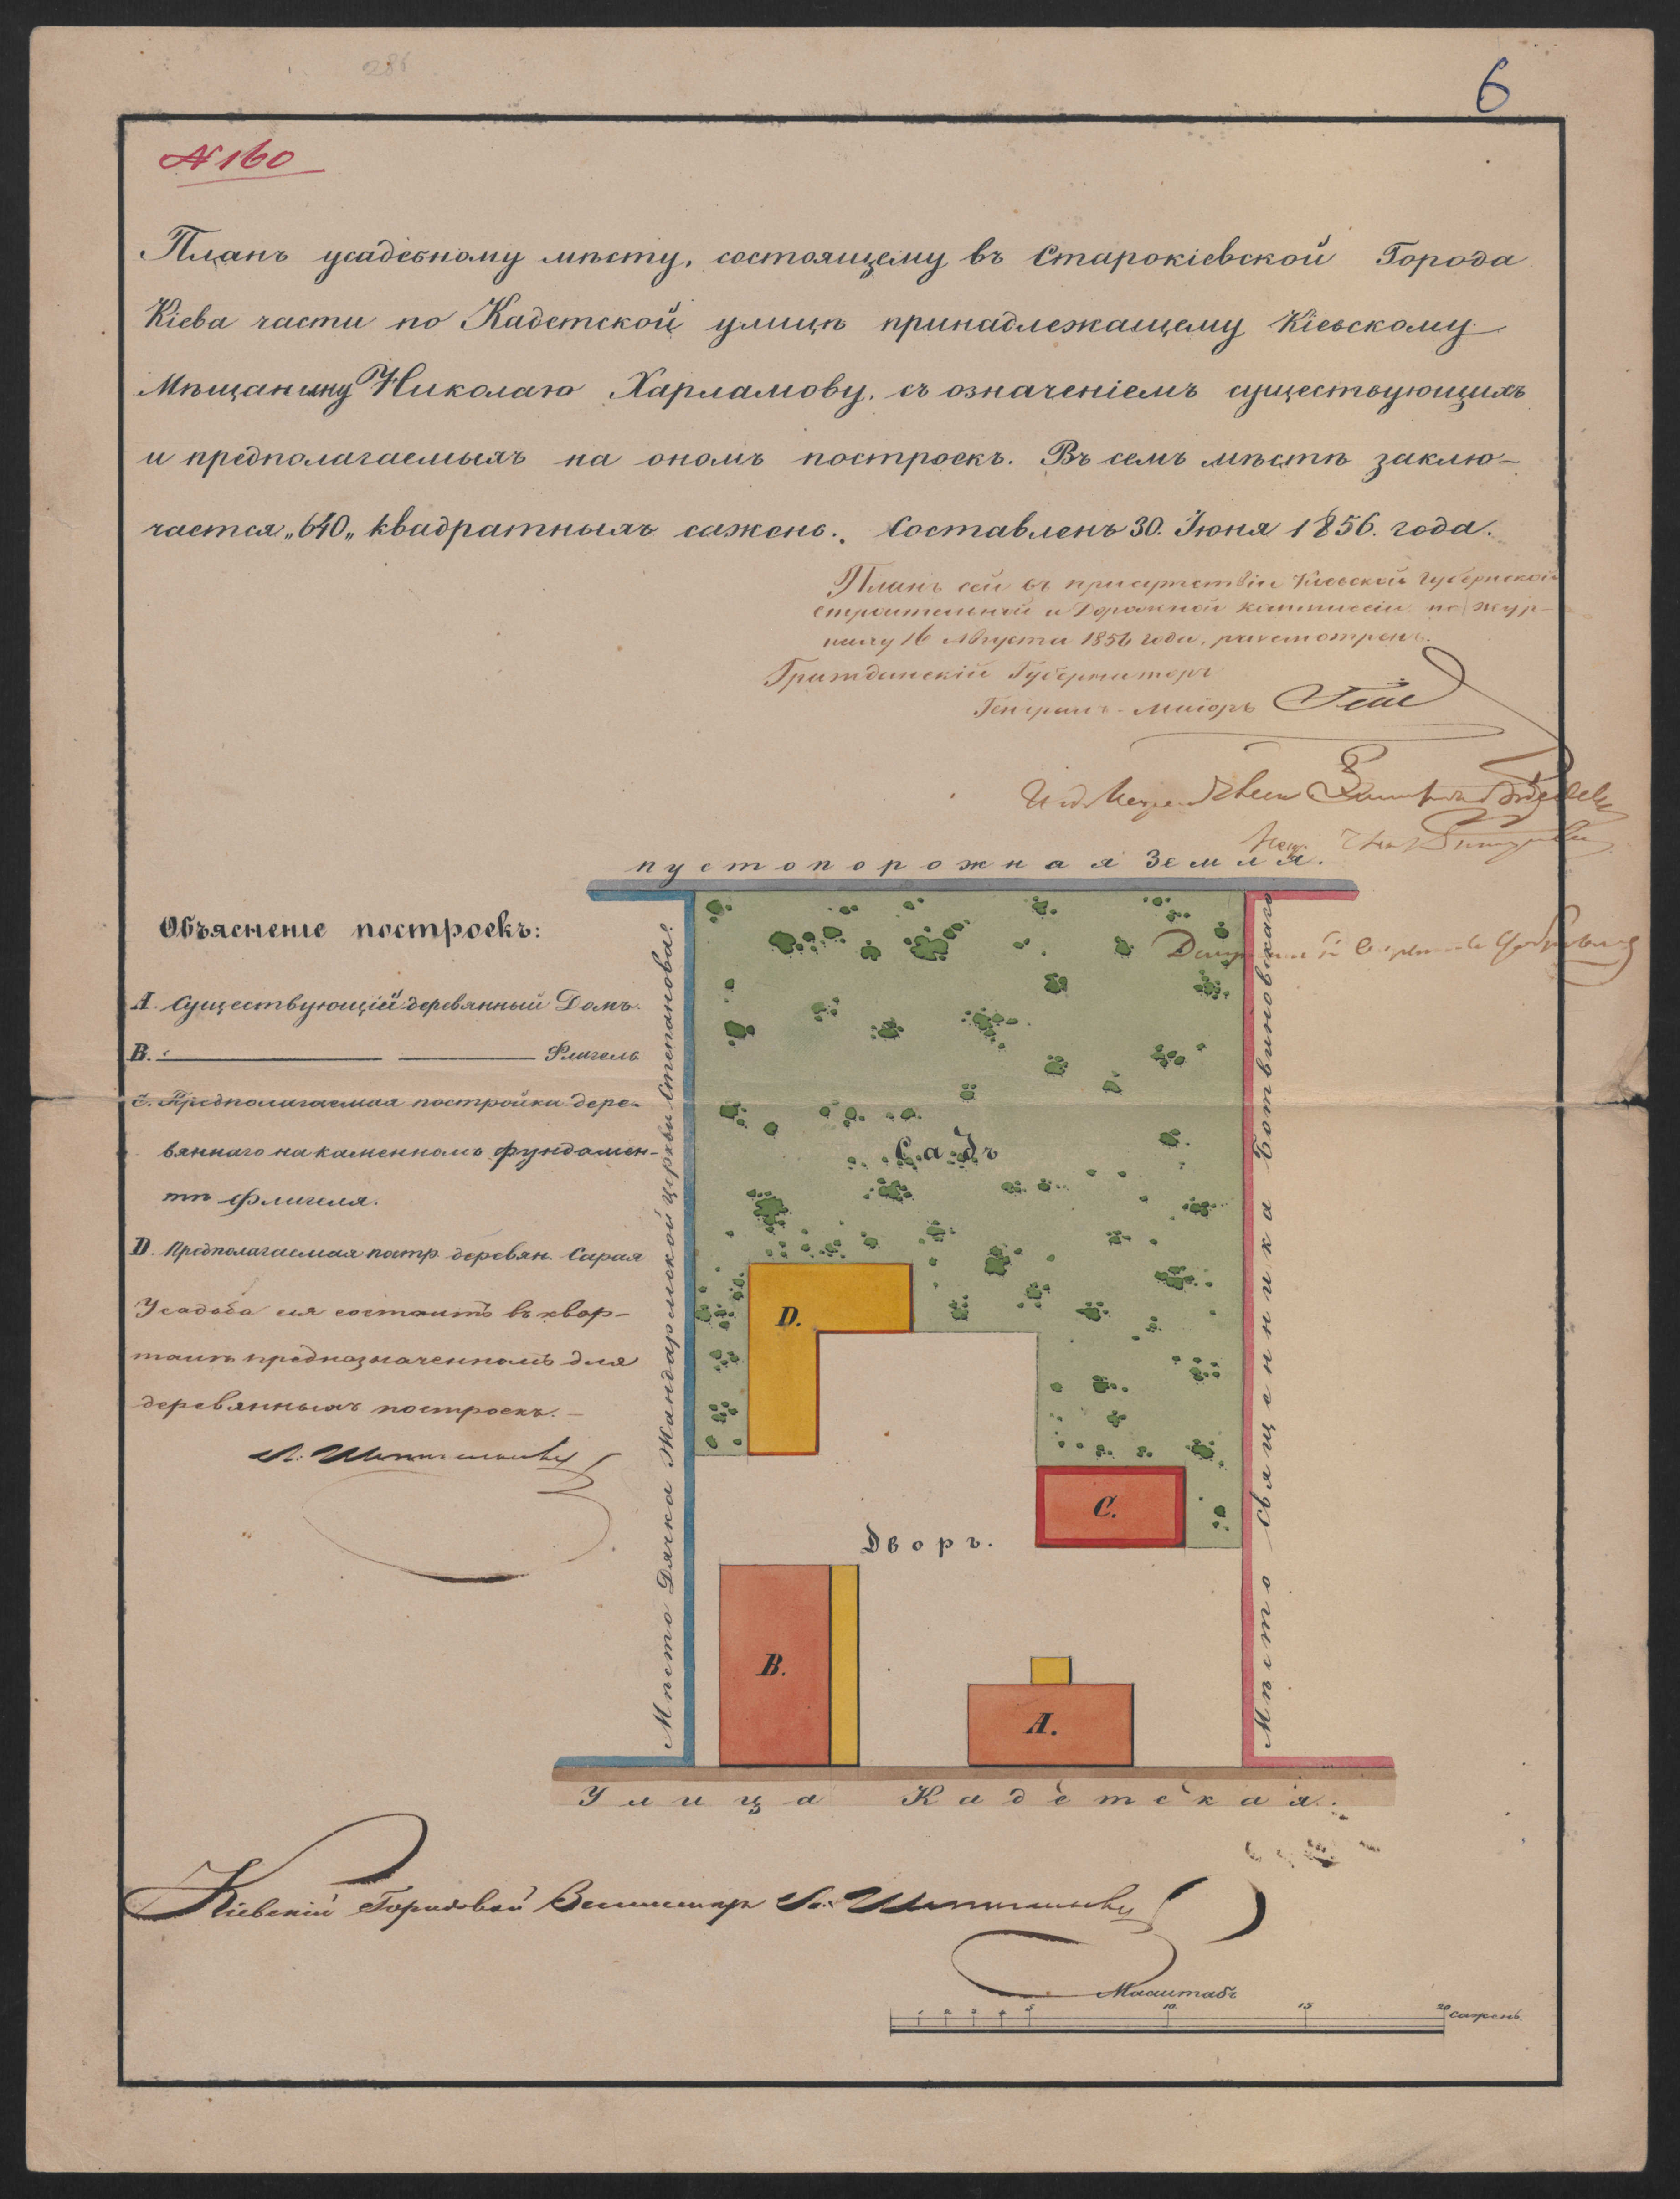 6
286
№ 160
Планъ усадебному мѣсту, состоящему въ Старокіевской Города
Кіева части по Кадетской улицѣ принадлежащему Кіевскому
Мѣщанину Николаю Харламову, съ означеніемъ существующихъ
и предполагаемыхъ на ономъ построекъ. Въ семъ мѣстѣ заклю-
чается „640„ квадратныхъ сажень. Составленъ 30. Іюня 1856. года.
Планъ сей въ присутствіи Кіевской Губернской
Строительной и Дорожной Коммиссіи по жур-
налу 16 Августа 1856 года, разсмотренъ.
Гражданскій Губернаторъ
Генералъ-Маіоръ
пустопорожная Земля.
Объясненіе построекъ:
A. Существующій деревянный Домъ.
B. Флигель
C. Предполагаемая постройка дере-
вяннаго на каменномъ фундамен-
тѣ флигеля.
D. Предполагаемая постр деревян. Сарая
Усадьба сія состоитъ въ квар-
талѣ предназначенномъ для
деревянныхъ построекъ.
Мѣсто Дячка Жандармской церкви Степанова.
Мѣсто священника Ботвиновскаго
Садъ
D.
C.
Дворъ.
B.
A.
Улица Кадетская.
Кіевскій Городовой
Масштабъ
1 2 3 4 5 10 15 20 сажень.